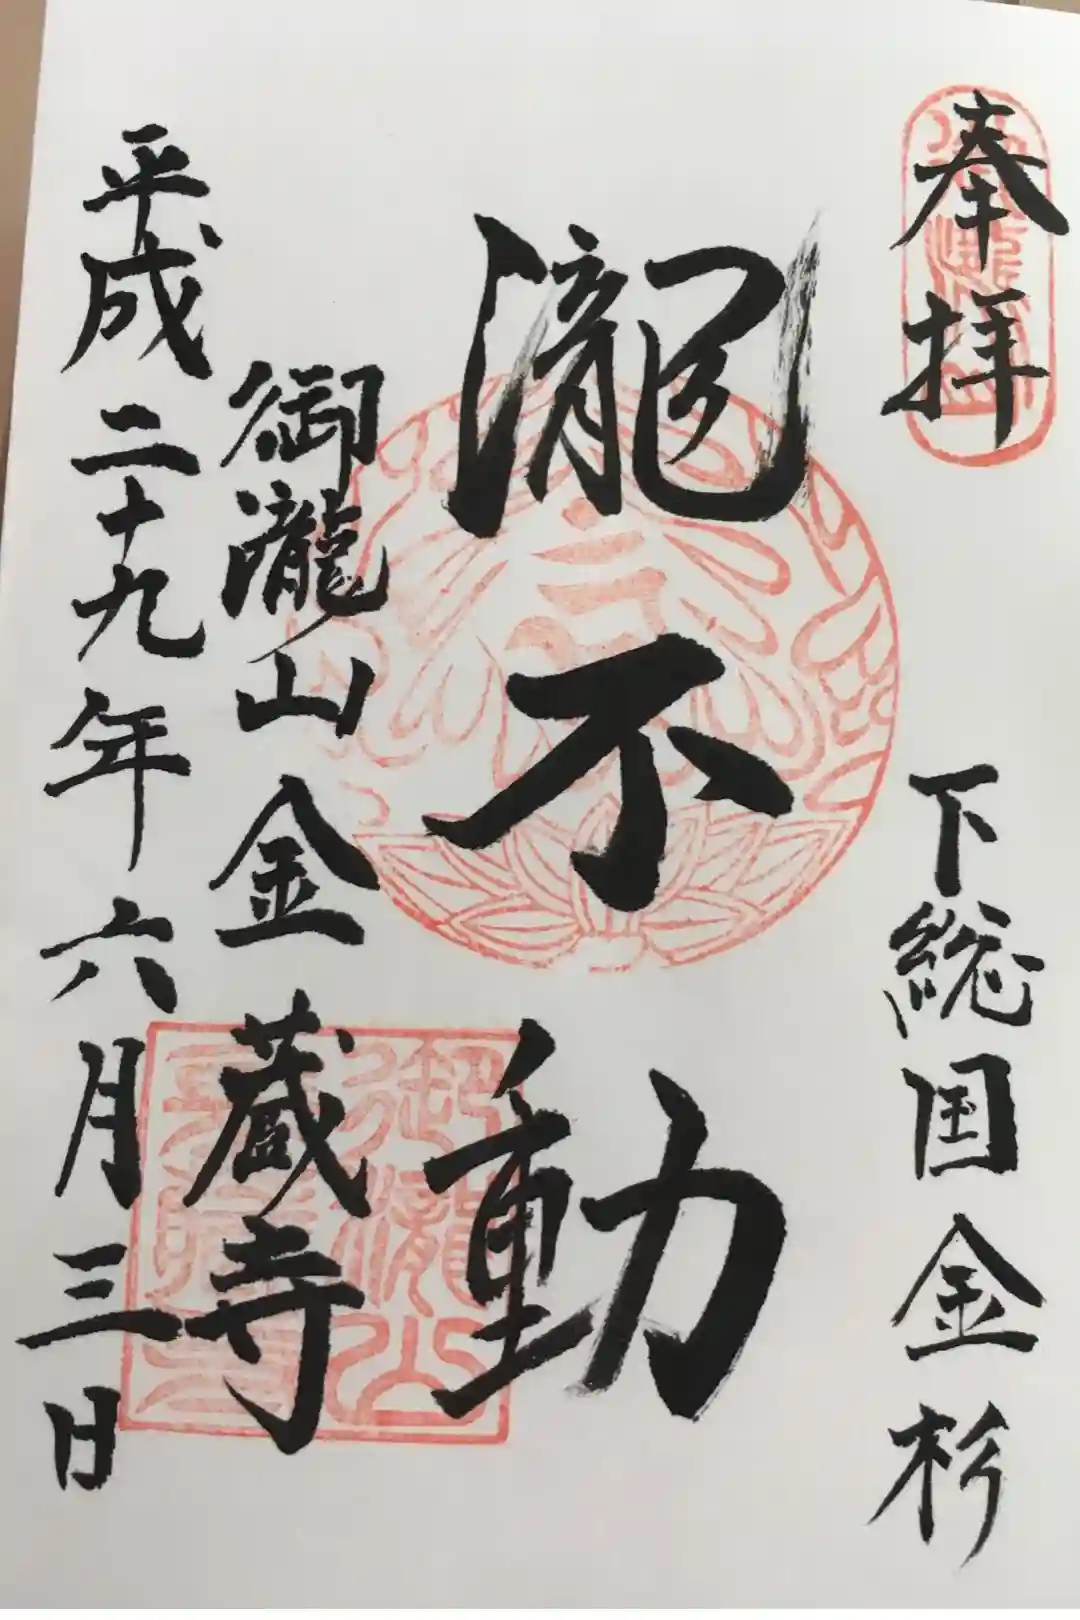 奉拝
下総国金杉
瀧不動
御瀧山金蔵寺
平成二十九年六月三日